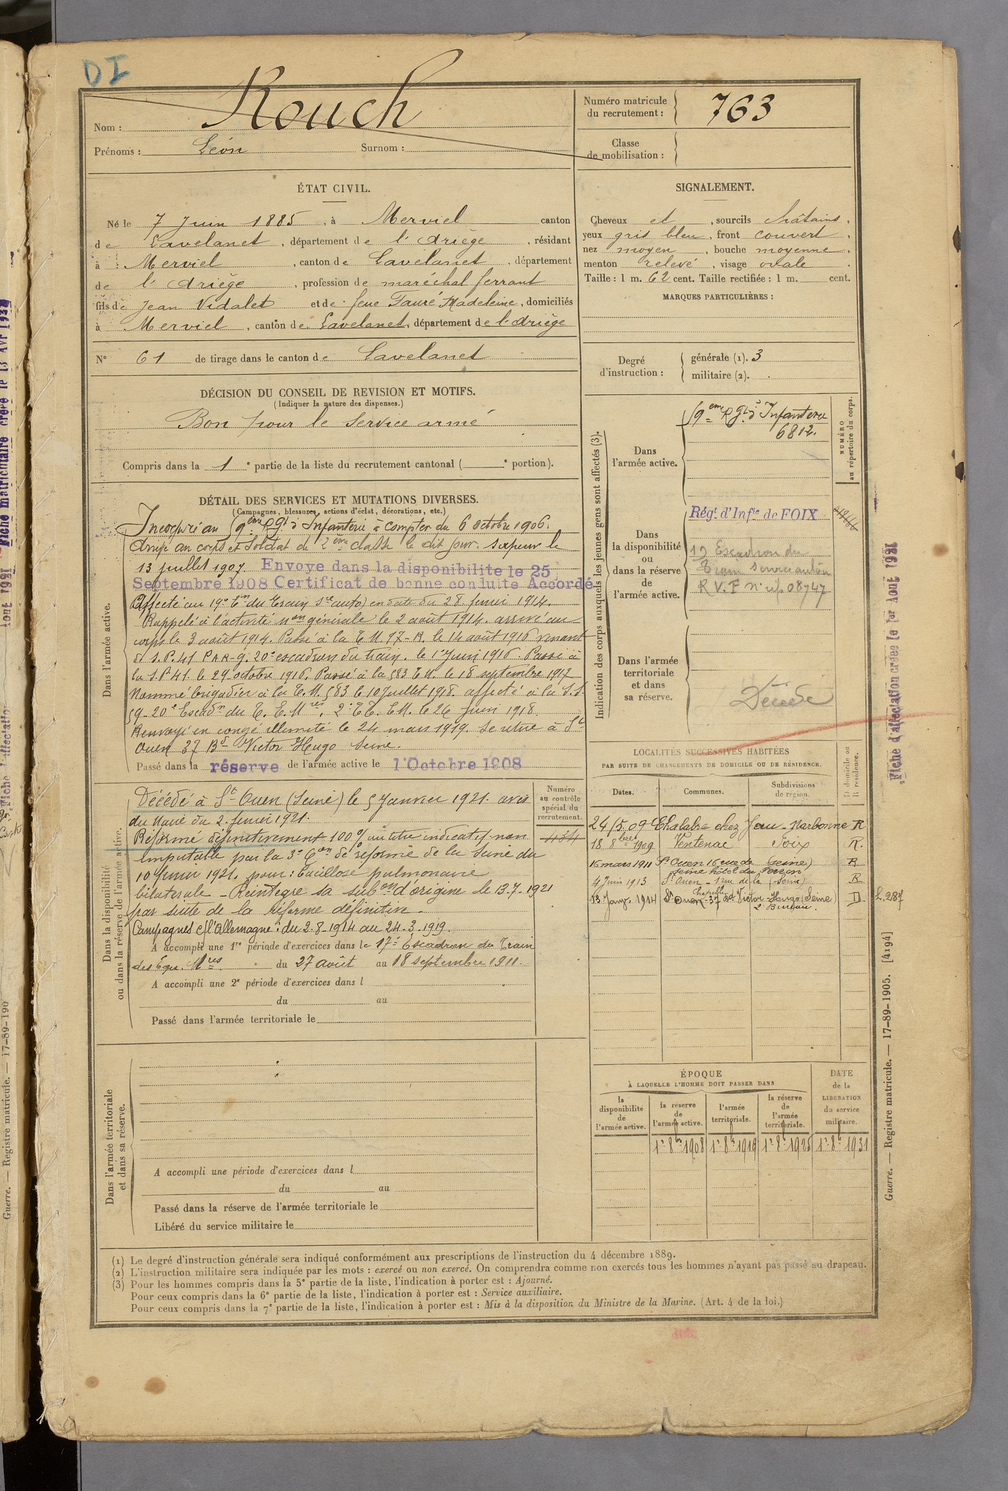 DI
Nom : Rouch
Prénoms : Léon Surnom :
Numéro matricule du recrutement : 763
Classe de mobilisation :
ÉTAT CIVIL.
Né le 7 Juin 1885, à Merviel canton
de Lavelanet, département de l'Ariège, résidant
à Merviel, canton de Lavelanet, département
de l'Ariège, profession de maréchal ferrant
fils de Jean Vidalet et de feue Fauré Madeleine, domiciliés
à Merviel, canton de Lavelanet, département de l'Ariège
N° 61 de tirage dans le canton de Lavelanet
SIGNALEMENT.
Cheveux et , sourcils châtains,
yeux gris bleu, front couvert,
nez moyen, bouche moyenne
menton relevé, visage ovale.
Taille : 1 m. 62 cent. Taille rectifiée : 1 m. cent.
MARQUES PARTICULIÈRES :
Degré d'instruction : générale (1). 3
militaire (2).
DÉCISION DU CONSEIL DE REVISION ET MOTIFS.
(Indiquer la nature des dispenses.)
Bon pour le Service armé
Compris dans la 1e partie de la liste du recrutement cantonal ( e portion).
DÉTAIL DES SERVICES ET MUTATIONS DIVERSES.
(Campagnes, blessures, actions d'éclat, décorations, etc.)
Dans l'armée active.
Incorporé au 9ème Rgt d'Infanterie à compter du 6 octobre 1906.
Arrivé au corps et soldat de 2ème classe le dit jour. Sapeur le
13 juillet 1907. Envoye dans la disponibilite le 25
Septembre 1908 Certificat de bonne conduite Accordé
Affecté au 19e Ern du Train Sce auto) en date du 28 fevrier 1914.
Rappelé à l'activité générale le 2 août 1914. arrivé au
corps le 3 août 1914. Passé à la T.M 17-R. le 14 août 1916 venant
20e escadron du train. le 1er Juin 1916. Passé à
la S.P.41 le 29 octobre 1916. Passé à la 583 T.M. le 18 septembre 1917
Nommé Brigadier à la T.M. 583 le 10 Juillet 1918. affecté à la S.S.
59-20e Escadon du T. le 26 Juin 1918.
Renvoyé en congé illimité le 24 mars 1919. Se retire à St
Ouen 37 Bd Victor Hugo Seine.
Passé dans la réserve de l'armée active le 1 Octobre 1908
Dans la disponibilité ou dans la réserve de l'armée active.
Décédé à St Ouen (Seine) le 5 Janvier 1921. avis
du Maire du 2. fevrier 1921.
Réformé définitivement 100% à titre indicatif non
imputable par la 3e Con de réforme de la Seine du
10 fevrier 1921. pour : Bacillose pulmonaire
bilatérale - Réintègre sa subon d'origine le 13.7.1921
par suite de la réforme définitive.
Campagnes c/ l'Allemagne : du 2.8.1914 au 24.3.1919.
A accompli une 1re période d'exercices dans le 17e Escadron du Train
des Eqes Mres du 27 août au 18 septembre 1911.
A accompli une 2e période d'exercices dans l
du au
Passé dans l'armée territoriale le
Numéro au contrôle spécial du recrutement.
Dans l'armée territoriale et dans sa réserve.
A accompli une période d'exercices dans l
du au
Passé dans la réserve de l'armée territoriale le
Libéré du service militaire le
Indication des corps auxquels les jeunes gens sont affectés (3).
Dans l'armée active.
9em Rgt d'Infanterie
6812.
NUMÉRO au répertoire du corps.
Dans la disponibilité ou dans la réserve de l'armée active.
Régt d'Infie de FOIX
19 Escadron du
Train Service auto
R.V.F n° rép 08747
Dans l'armée territoriale et dans sa réserve.
Décédé
LOCALITÉS SUCCESSIVES HABITÉES
PAR SUITE DE CHANGEMENTS DE DOMICILE OU DE RÉSIDENCE.
Dates. Communes. Subdivisions de région. D domicile ou R résidence.
24/5.09 Chalabre chez Jean Narbonne R
18 8bre 1909 Ventenac Foix R.
16 mars 1911 St Ouen 16 rue de (Seine) R
4 Juin 1913 St Ouen (Seine) R
13 Janv. 1914 St Ouen-37 Bd Victor Hugo Seine D
2e Bureau
L.287
ÉPOQUE
À LAQUELLE L'HOMME DOIT PASSER DANS
DATE de la LIBÉRATION du service militaire.
la disponibilité de l'armée active.
la réserve de l'armée active.
l'armée territoriale.
la réserve de l'armée territoriale.
1er 8bre 1908 1er 8bre 1919 1er 8bre 1925 1er 8bre 1931
(1) Le degré d'instruction générale sera indiqué conformément aux prescriptions de l'instruction du 4 décembre 1889.
(2) L'instruction militaire sera indiquée par les mots : exercé ou non exercé. On comprendra comme non exercés tous les hommes n'ayant pas passé au drapeau.
(3) Pour les hommes compris dans la 5e partie de la liste, l'indication à porter est : Ajourné.
Pour ceux compris dans la 6e partie de la liste, l'indication à porter est : Service auxiliaire.
Pour ceux compris dans la 7e partie de la liste, l'indication à porter est : Mis à la disposition du Ministre de la Marine. (Art. 4 de la loi.)
Fiche d'affectation créée le 1er Aout 1931
Guerre. — Registre matricule. — 17-89-1905. [4194]
Fiche matriculaire créée le 13 Avr 1931
Guerre. — Registre matricule. — 17-89-190